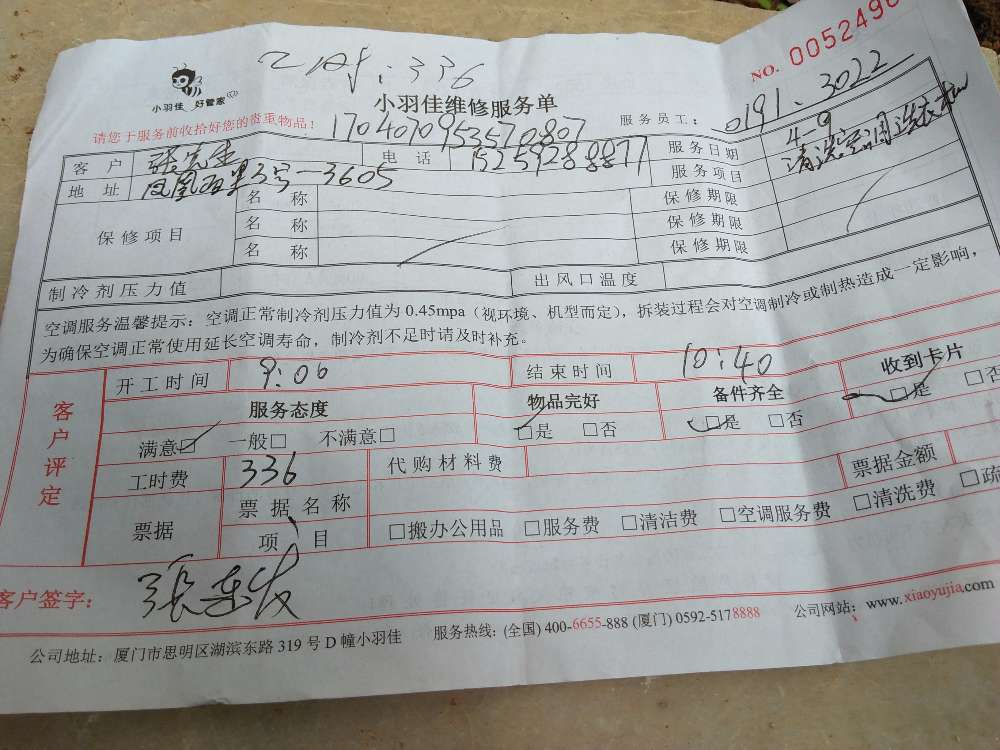 NO. 0052490
336
小羽佳 好管家
小羽佳维修服务单
请您于服务前收拾好您的贵重物品！
服务员工：0191.3022
1704070953570807
客户 张先生 电话 15259288877 服务日期 4-9
地址 凤凰 3号-3605 服务项目 清洗空调洗衣机
保修项目 名称 保修期限
名称 保修期限
名称 保修期限
制冷剂压力值 出风口温度
空调服务温馨提示：空调正常制冷剂压力值为 0.45mpa（视环境、机型而定），拆装过程会对空调制冷或制热造成一定影响，
为确保空调正常使用延长空调寿命，制冷剂不足时请及时补充。
客户评定
开工时间 9:06 结束时间 10:40
服务态度 物品完好 备件齐全 收到卡片
满意☑ 一般□ 不满意□ ☑是 □否 ☑是 □否 ☑是 □否
工时费 336 代购材料费 票据金额
票据 票据名称
项目 □搬办公用品 □服务费 □清洁费 □空调服务费 □清洗费 □疏
客户签字：
公司地址：厦门市思明区湖滨东路 319 号 D 幢小羽佳 服务热线：(全国) 400-6655-888 (厦门) 0592-5178888 公司网站：www.xiaoyujia.com